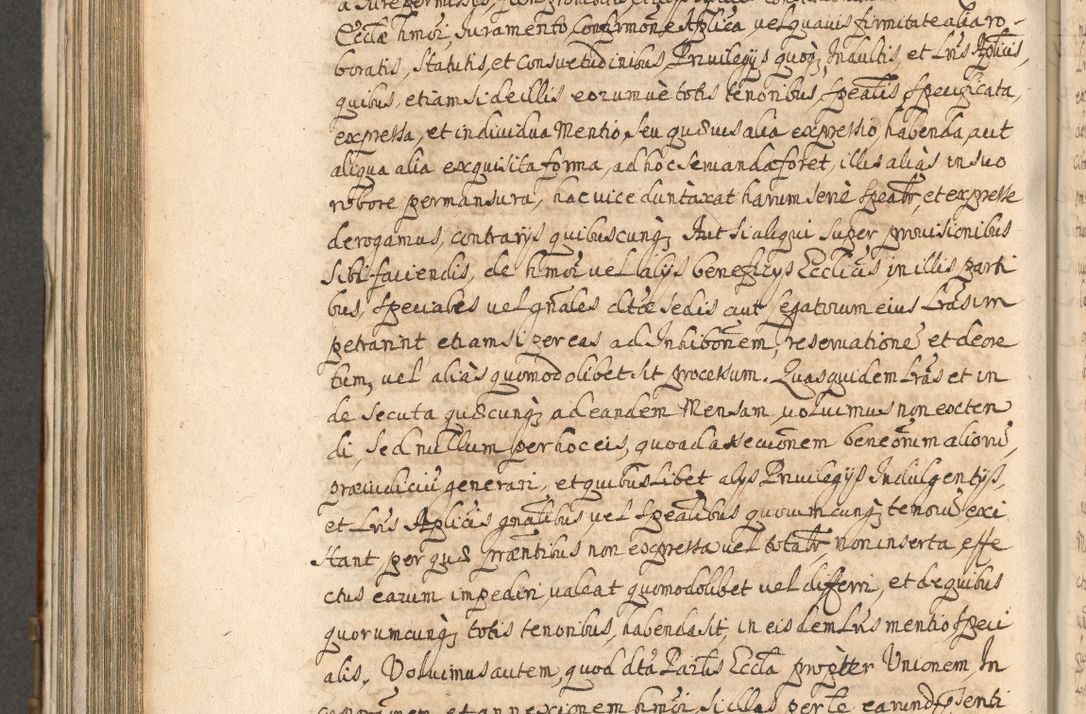 Ecclae hmoi, Juramento, Confirmone Aplica, vel quavis firmitate alia ro-
boratis, Statutis, et Consvetudinibus, Privilegys quoq; Indultis, et Lris Aplicis,
quibus, etiam si de illis eorumve totis tenoribus, spealis specifica ta,
expressa, et individua Mentio, seu quaevis alia expressio, habenda, aut
aliqua alia exquisita forma, ad hoc servanda foret, illis aliàs in suo
robore permansura, hac vice duntaxat harum serie spealr, et expresse
derogamus, contrarys quibuscunq; Aut si aliqui super provisionibus
sibi faciendis, de hmoi vel alys beneficys Ecclicis, in illis parti
bus, speciales vel gnales dctae sedis aut legatorum eius Lras im
petrarint etiam si per eas ad Inhibonem, reservatione et decre
tum, vel aliàs quomodolibet sit processum. Quas quidem Lras et in
de secuta quaecunq; ad eandem Mensam, volvimus non exten
di, sed nullum per hoc eis, quoad assecuonem beneorum aliorũ,
praeiudiciũ generari, et quibuslibet alys Privilegys Indulgentys,
et Lris Aplicis gnalibus vel spealibus quorumcunq; tenorũ exi
stant per quae praentibus non expressa vel totalr non inserta, effe
ctus earum inpediri valeat quomodolibet vel differri, et de quibus
quorumcunq; totis tenoribus, habenda sit, in eisdem Lris mentio speci
alis. Volvimus autem, quod dta Parlis Eccla propter Unionem, In